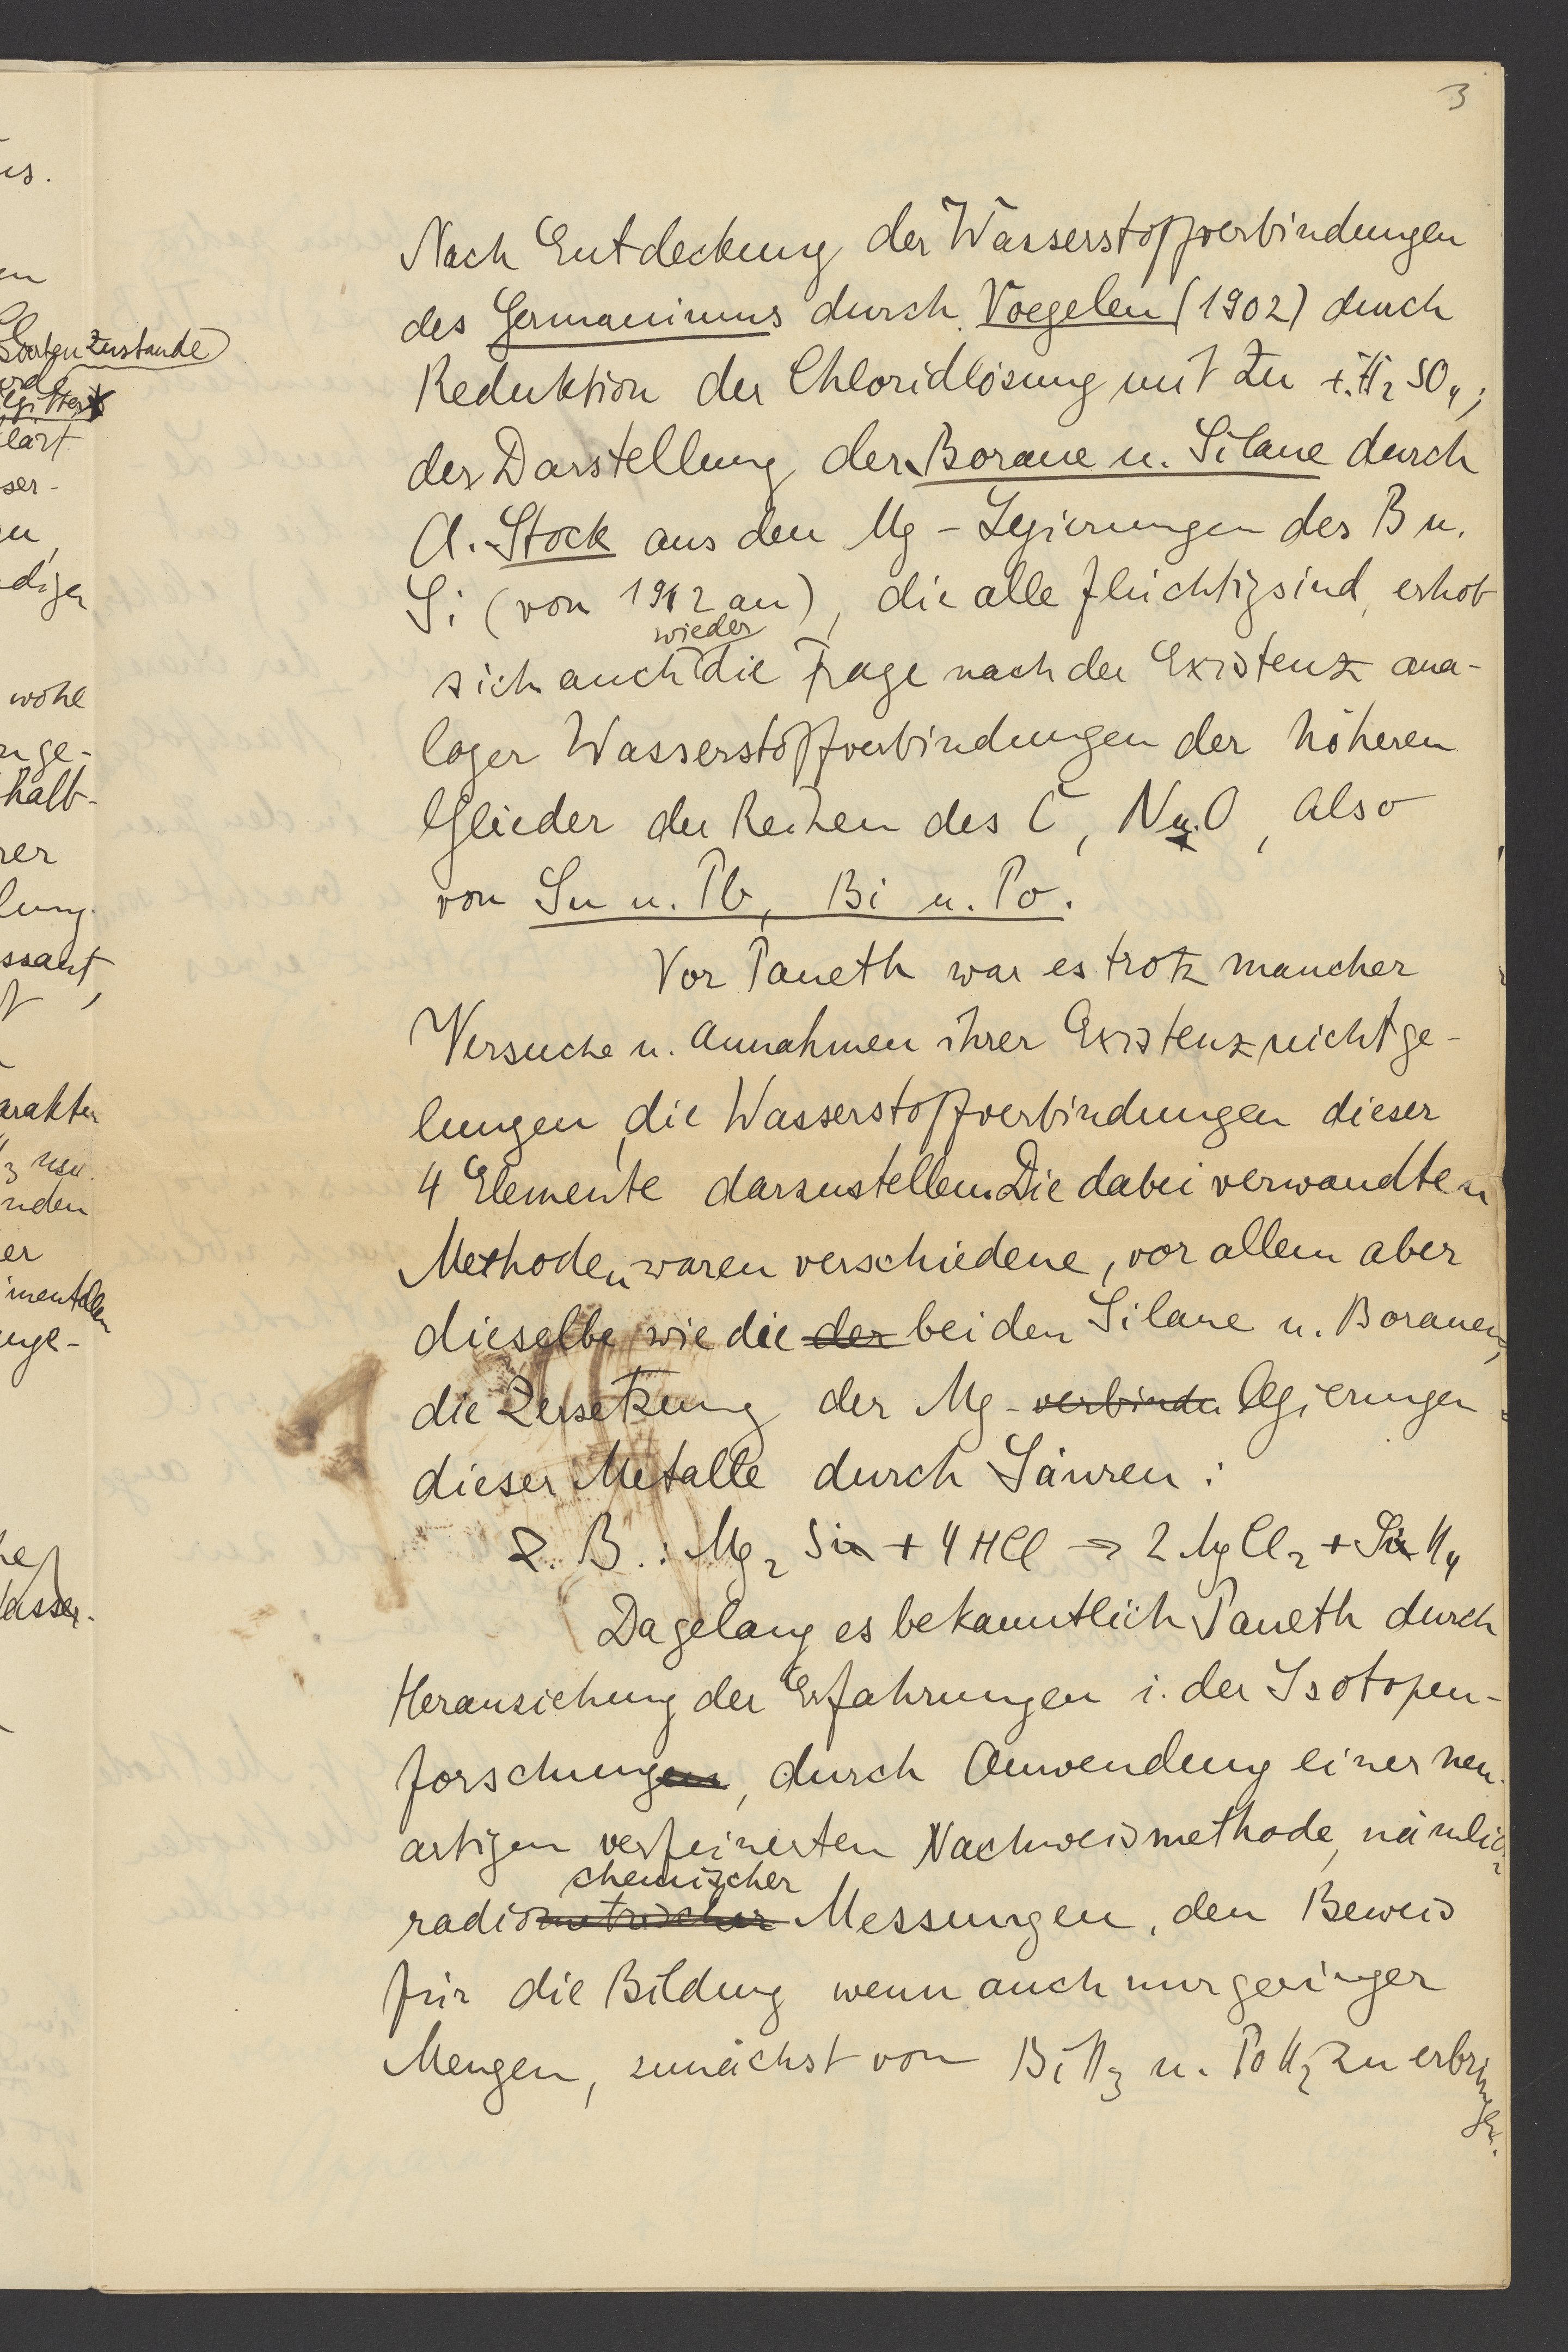 3
Nach Entdeckung der Wasserstoffverbindungen
des Germaniums durch Voegelen (1902) durch
Reduktion der Chloridlösung mit Zn +. H₂SO₄;
der Darstellung der Borane u. Silane durch
A. Stock aus den Mg-Legierungen des B u.
Si (von 1912 an), die alle flüchtig sind, erhob
wieder
sich auch die Frage nach der Existenz ana-
loger Wasserstoffverbindungen der höheren
Glieder der Reihen des C, N u. O, also
von Sn u. Pb, Bi u. Po.
Vor Paneth war es trotz mancher
Versuche u. Annahmen ihrer Existenz nicht ge-
lungen, die Wasserstoffverbindungen dieser
4 Elemente darzustellen. Die dabei verwandten
Methoden waren verschiedene, vor allem aber
dieselbe wie die der bei den Silane u. Boranen,
die Zersetzung der Mg-verbindu legierungen
dieser Metalle durch Säuren:
z. B.: Mg₂ Sn + 4 HCl → 2 MgCl₂ + SnH₄
Da gelang es bekanntlich Paneth durch
Heranziehung der Erfahrungen i. der Isotopen-
forschungen, durch Anwendung einer neu-
artigen verfeinerten Nachweismethode, nämlich
chemischer
radiometrischer Messungen, den Beweis
für die Bildung wenn auch nur geringer
Mengen, zunächst von BiH₃ u. PoH₂ zu erbringen.
us.
en
Zustande
lärt
ser-
digen
wohl
nge-
halb-
rer
lung
ssant,
arakter
₃ usw.
nden
er
imentellen
nge-
he
Wasser-